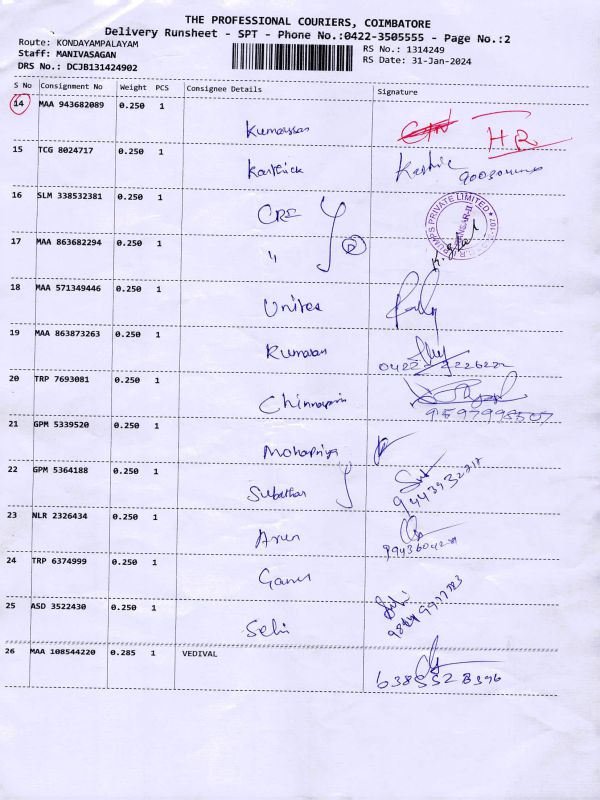 THE PROFESSIONAL COURIERS, COIMBATORE
Delivery Runsheet - SPT - Phone No.:0422-3505555 - Page No.:2
Route: KONDAYAMPALAYAM
Staff: MANIVASAGAN
DRS No.: DCJB131424902
RS No.: 1314249
RS Date: 31-Jan-2024
S No Consignment No Weight PCS Consignee Details Signature
14 MAA 943682089 0.250 1 HR
15 TCG 8024717 0.250 1 Karthick
16 SLM 338532381 0.250 1 CRI
17 MAA 863682294 0.250 1 "
18 MAA 571349446 0.250 1
19 MAA 863873263 0.250 1
20 TRP 7693081 0.250 1
21 GPM 5339520 0.250 1 Mohapriya
22 GPM 5364188 0.250 1
23 NLR 2326434 0.250 1 Arun
24 TRP 6374999 0.250 1
25 ASD 3522430 0.250 1
26 MAA 108544220 0.285 1 VEDIVAL 6385528396